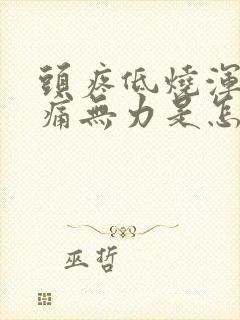 頭疼低燒渾
痛無力是怎
巫哲